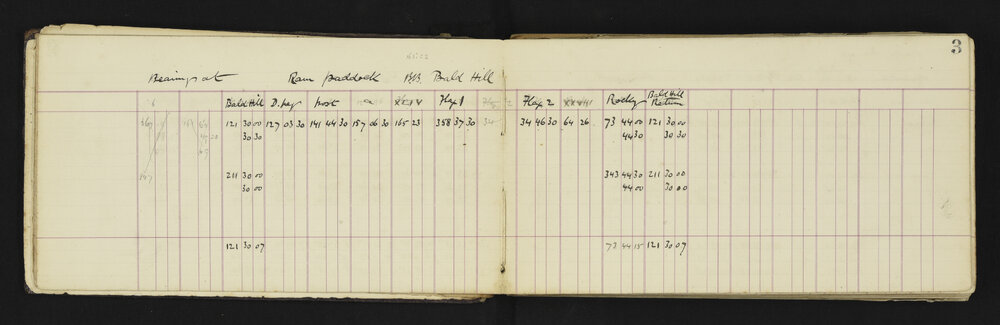 3
Bearings at Ram Paddock BB Bald Hill
Bald Hill D. Leg Post Flag 1 Flag 2 Rocky Bald Hill Return
121 30 00 127 03 30 141 44 30 157 06 30 165 23 358 37 30 34 46 30 64 26 73 44 00 121 30 00
30 30 44 30 30 30
211 30 00 343 44 30 211 30 00
30 00 44 00 30 00
121 30 07 73 44 15 121 30 07